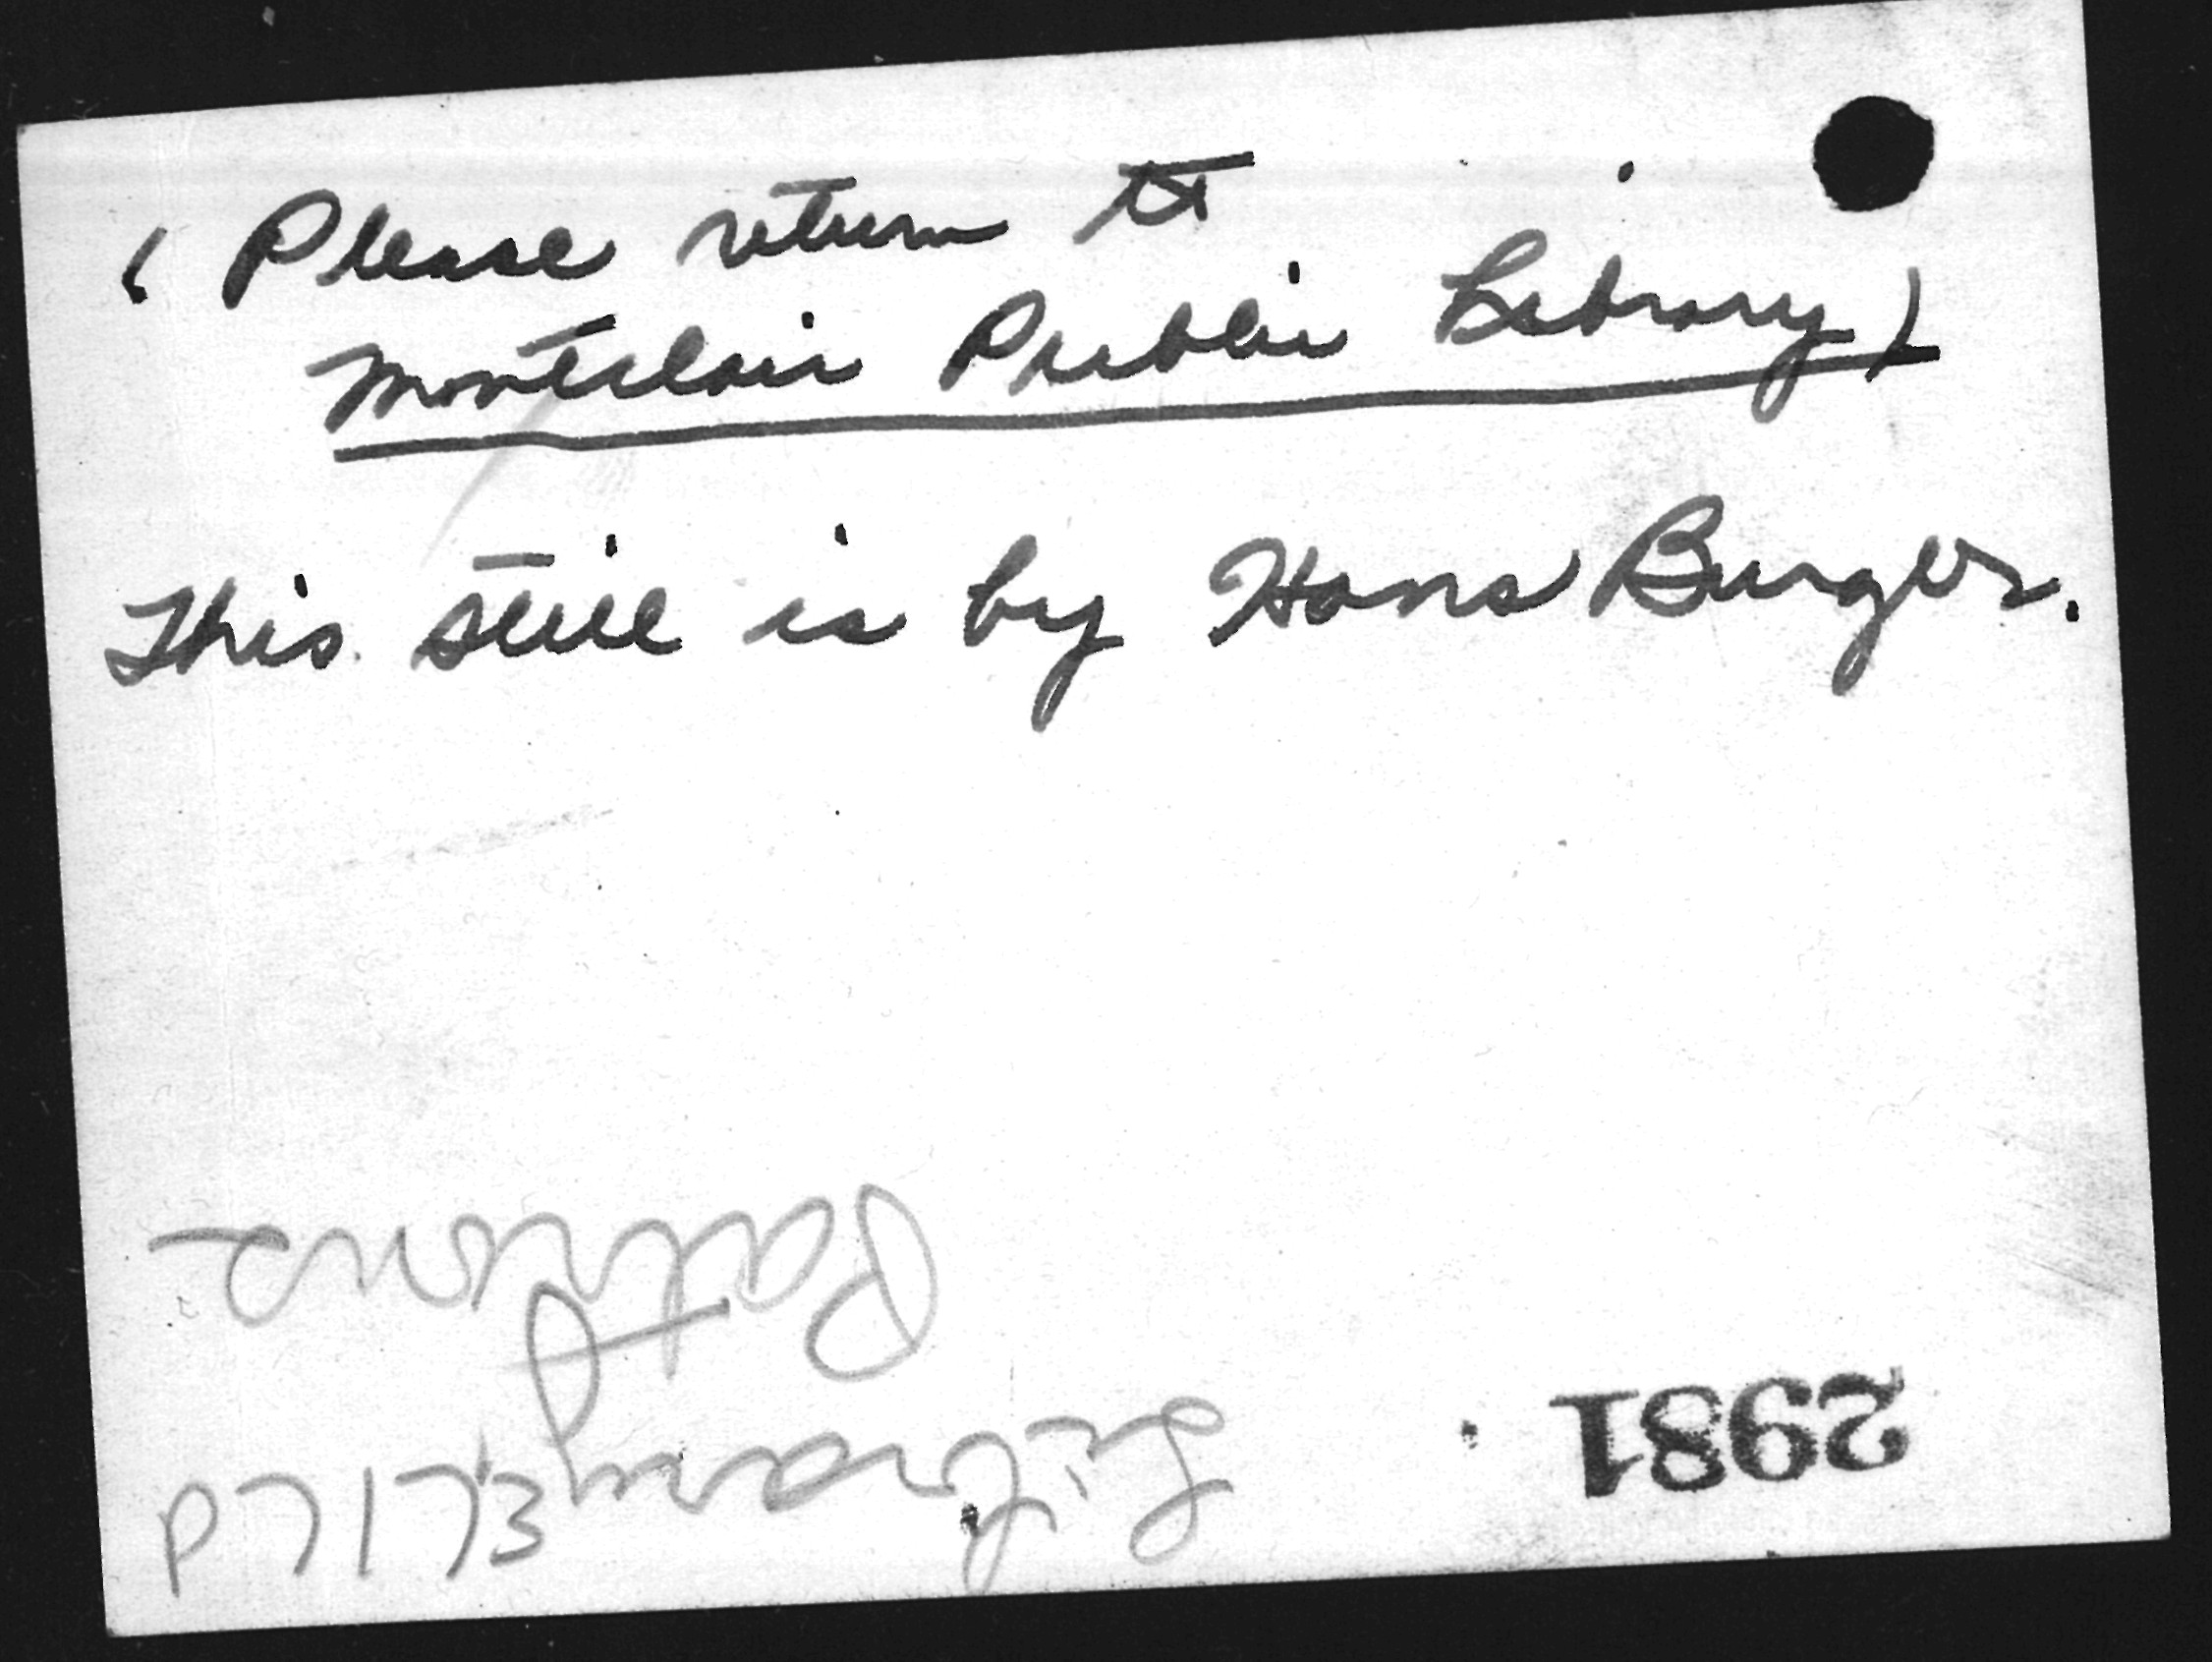 ( Please return to
Montclair Public Library )
This still is by Hans Burger.
Patrons
Library
2981